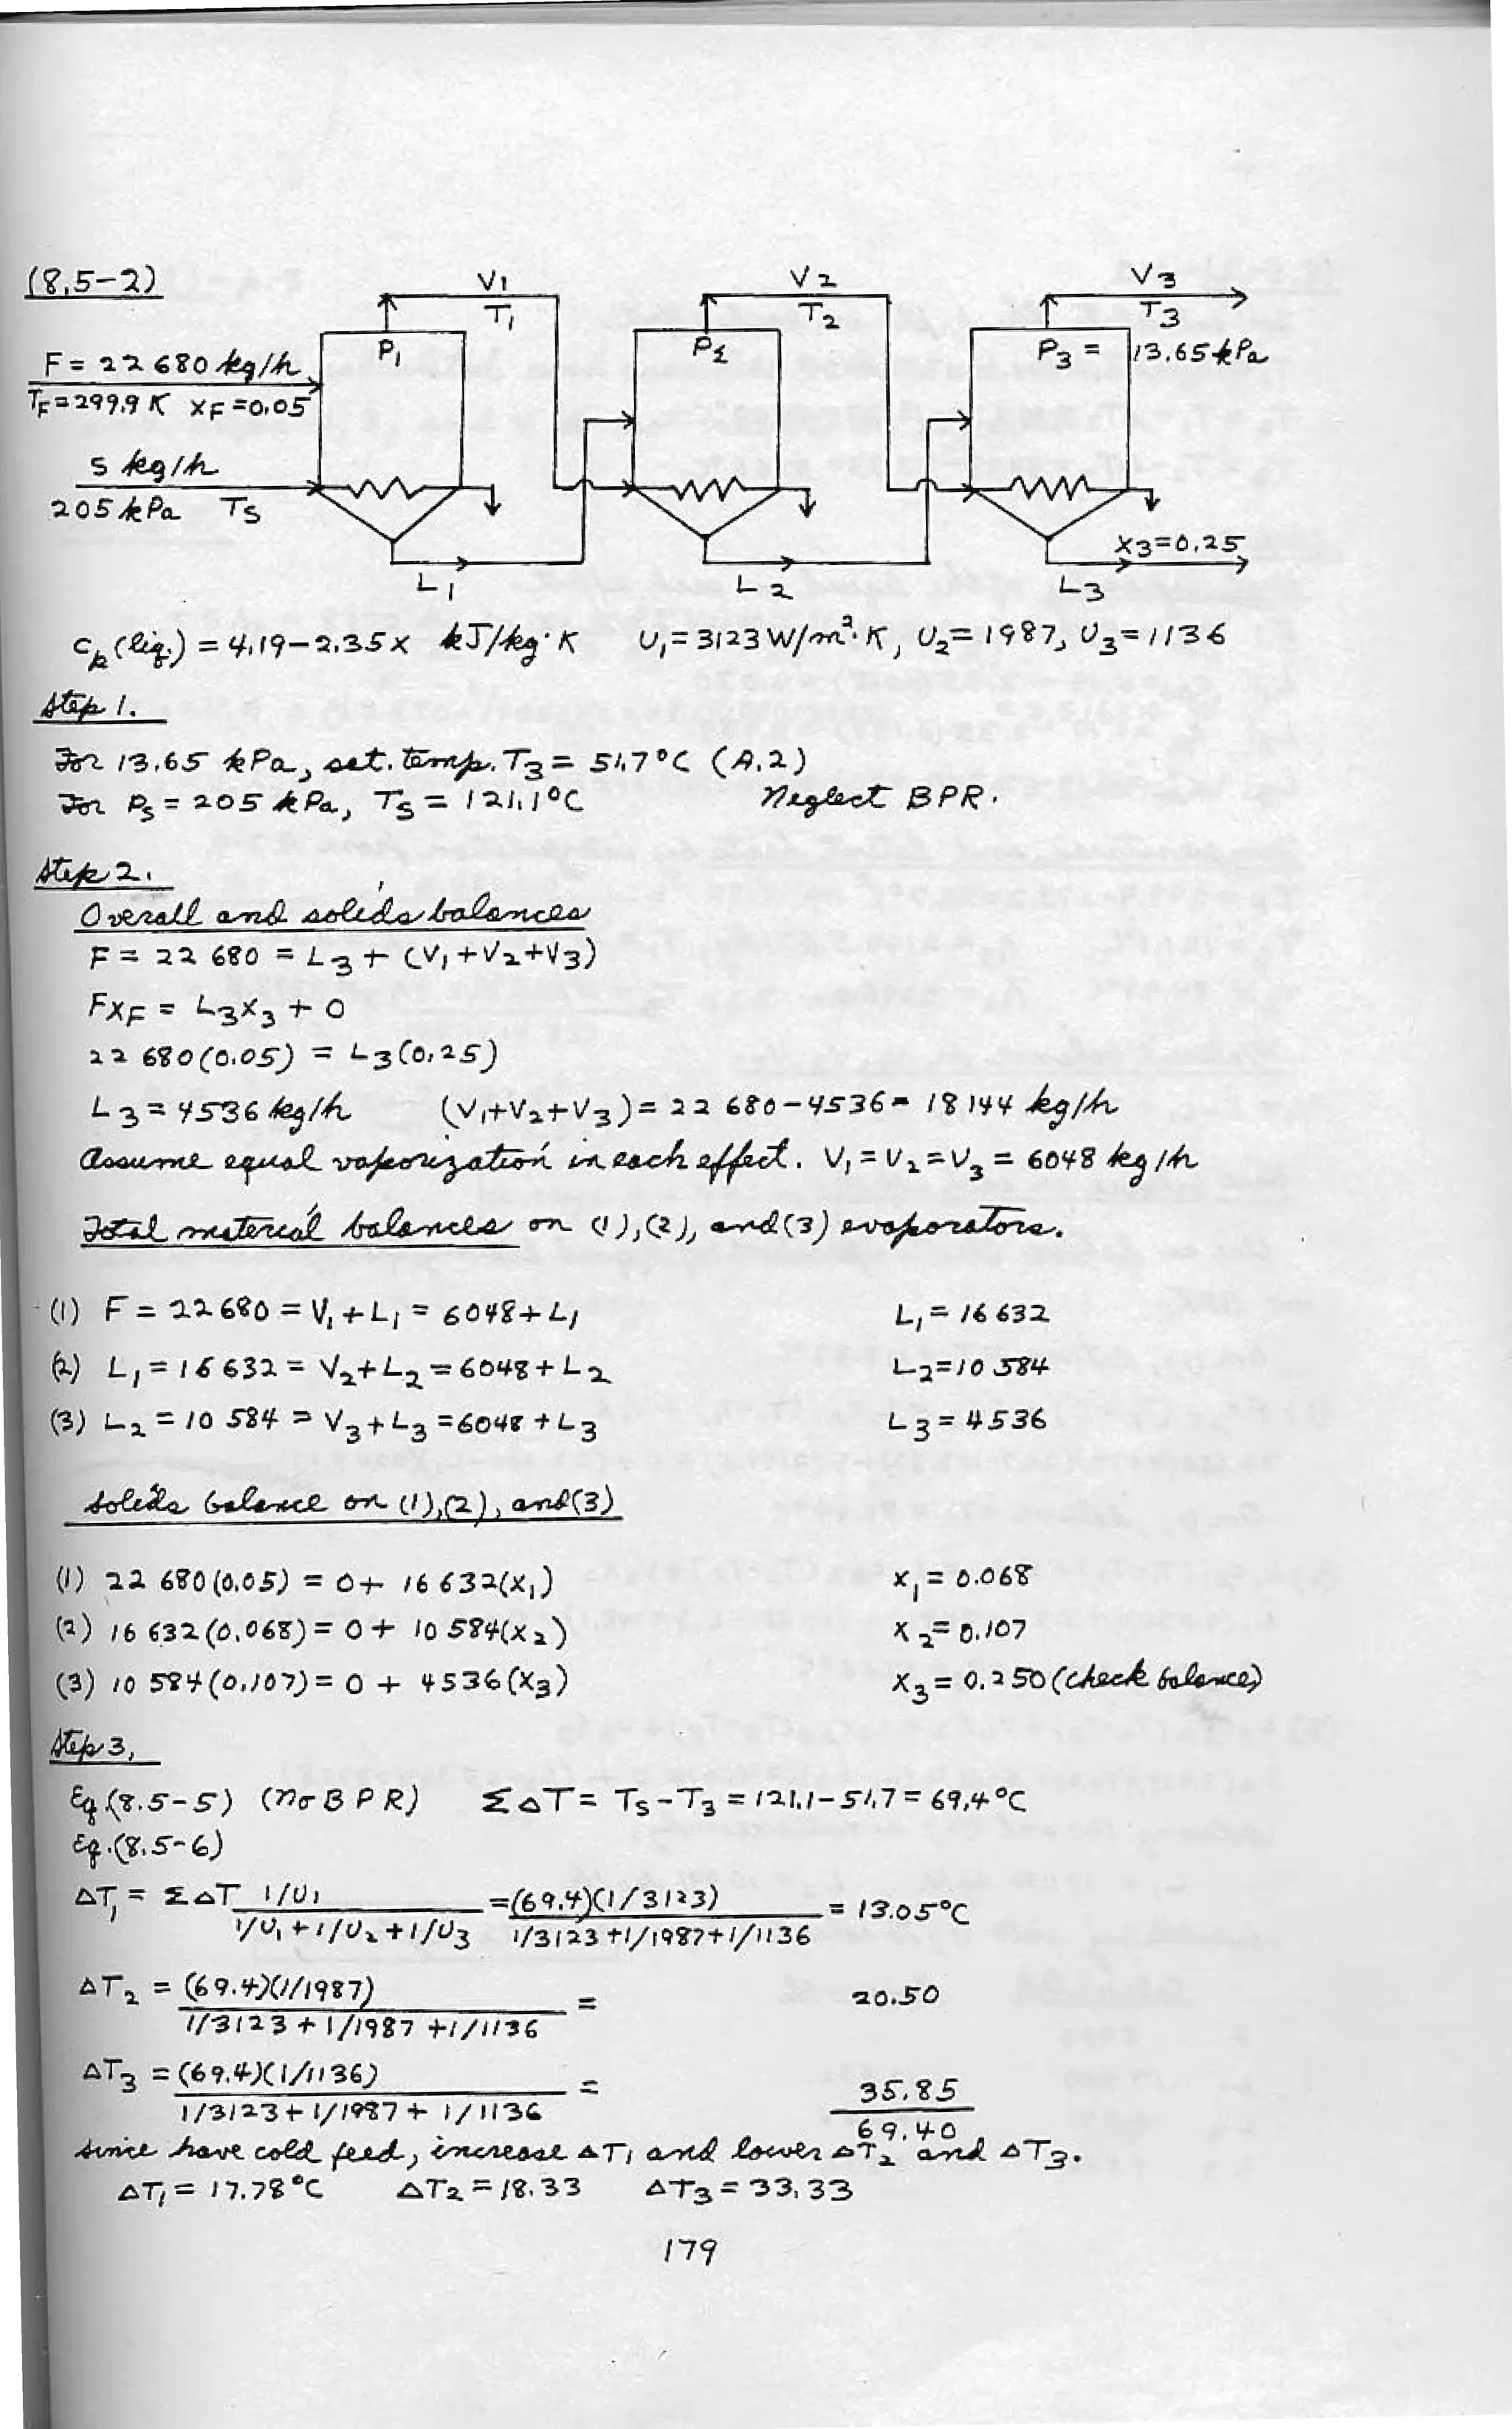 (8.5-2)
V1 V2 V3
T1 T2 T3
F = 22 680 kg/h P1 P2 P3 = 13.65 kPa
TF = 299.9 K xF = 0.05
S kg/h
205 kPa TS
x3 = 0.25
L1 L2 L3
cp (liq.) = 4.19-2.35x kJ/kg·K U1 = 3123 W/m²·K, U2 = 1987, U3 = 1136
Step 1.
For 13.65 kPa, sat. temp. T3 = 51.7°C (A.2)
For Ps = 205 kPa, Ts = 121.1°C Neglect BPR.
Step 2.
Overall and solids balances
F = 22 680 = L3 + (V1+V2+V3)
FxF = L3x3 + 0
22 680(0.05) = L3(0.25)
L3 = 4536 kg/h (V1+V2+V3) = 22 680-4536 = 18144 kg/h
Assume equal vaporization in each effect. V1 = V2 = V3 = 6048 kg/h
Total material balances on (1),(2), and (3) evaporators.
(1) F = 22680 = V1 + L1 = 6048 + L1 L1 = 16 632
(2) L1 = 16 632 = V2 + L2 = 6048 + L2 L2 = 10 584
(3) L2 = 10 584 = V3 + L3 = 6048 + L3 L3 = 4536
Solids balance on (1),(2), and (3)
(1) 22 680(0.05) = 0 + 16 632(x1) x1 = 0.068
(2) 16 632(0.068) = 0 + 10 584(x2) x2 = 0.107
(3) 10 584(0.107) = 0 + 4536(x3) x3 = 0.250 (check balance)
Step 3.
Eq.(8.5-5) (no BPR) ΣΔT = Ts - T3 = 121.1-51.7 = 69.4°C
Eq.(8.5-6)
ΔT1 = ΣΔT 1/U1 = (69.4)(1/3123) = 13.05°C
1/U1 + 1/U2 + 1/U3 1/3123 + 1/1987 + 1/1136
ΔT2 = (69.4)(1/1987) = 20.50
1/3123 + 1/1987 + 1/1136
ΔT3 = (69.4)(1/1136) = 35.85
1/3123 + 1/1987 + 1/1136
69.40
Since have cold feed, increase ΔT1 and lower ΔT2 and ΔT3.
ΔT1 = 17.78°C ΔT2 = 18.33 ΔT3 = 33.33
179